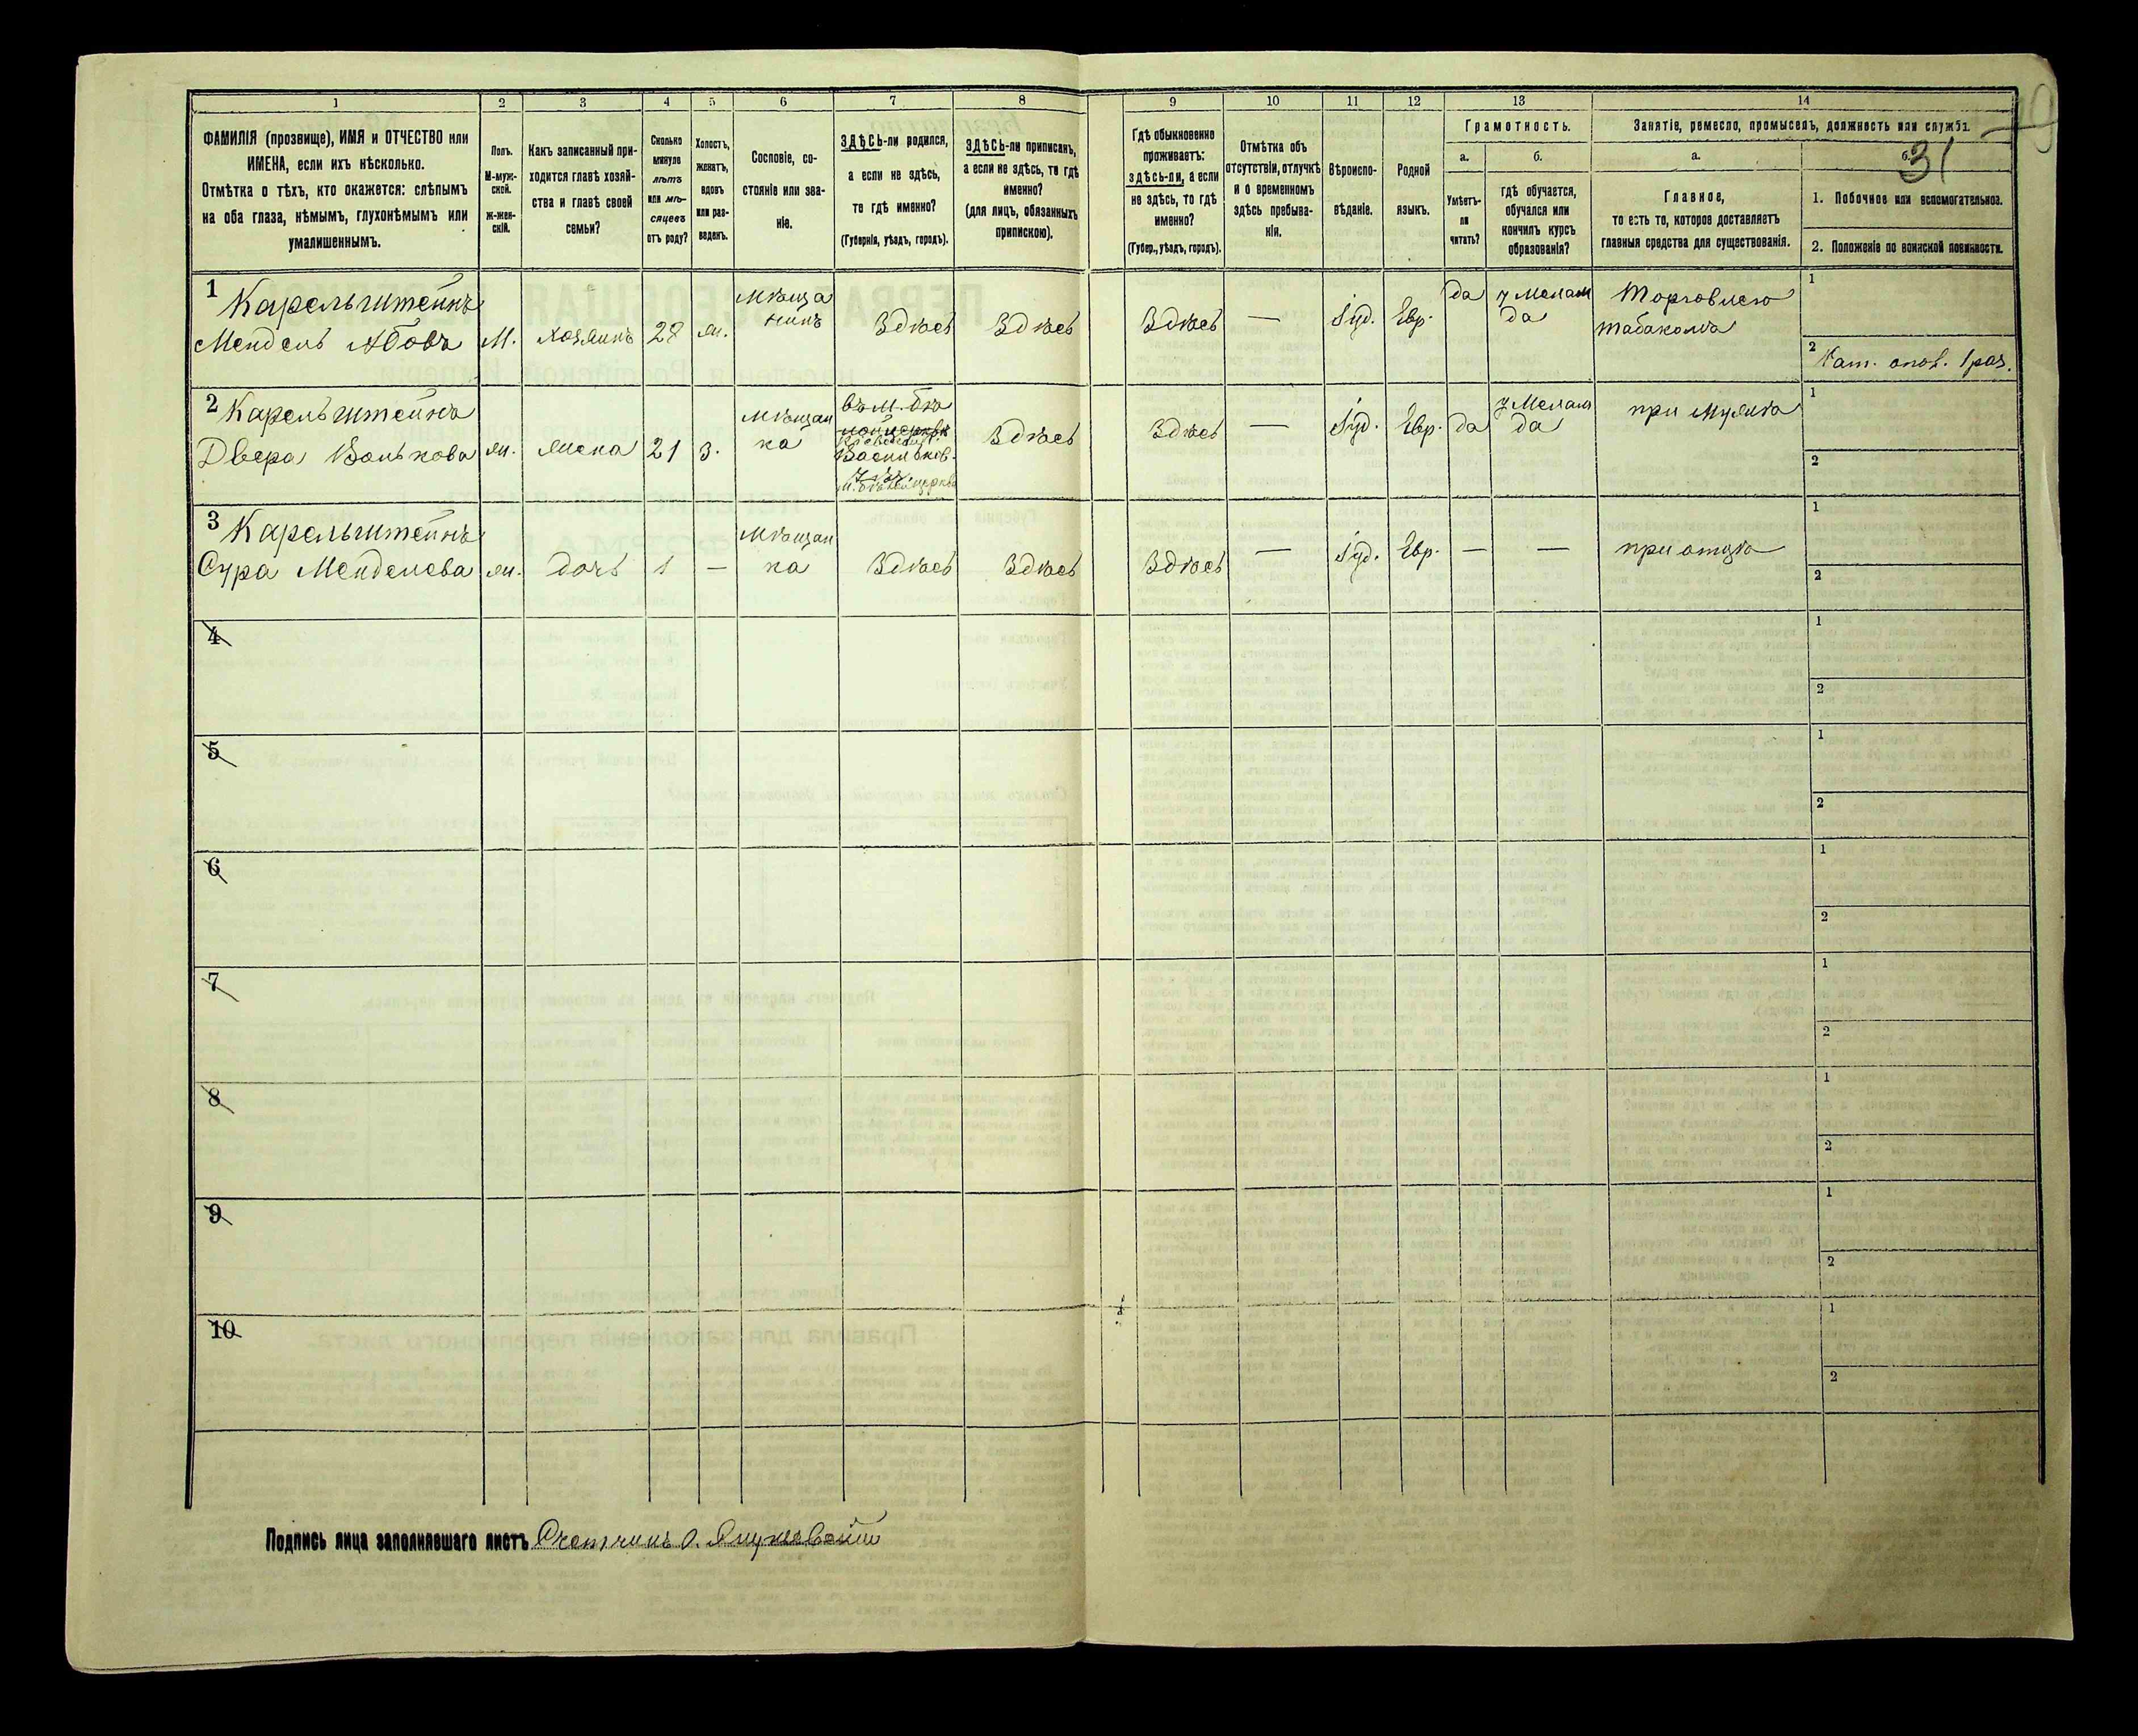 1 2 3 4 5 6 7 8 9 10 11 12 13 14
ФАМИЛІЯ (прозвище), ИМЯ и ОТЧЕСТВО или
ИМЕНА, если ихъ нѣсколько.
Отмѣтка о тѣхъ, кто окажется: слѣпымъ
на оба глаза, нѣмымъ, глухонѣмымъ или
умалишеннымъ.
Полъ.
М-муж-
ской.
ж-жен-
скій.
Какъ записанный при-
ходится главѣ хозяй-
ства и главѣ своей
семьи?
Сколько
минуло
лѣтъ
или мѣ-
сяцевъ
отъ роду?
Холостъ,
женатъ,
вдовъ
или раз-
веденъ.
Сословіе, со-
стояніе или зва-
ніе.
ЗДѢСЬ-ли родился,
а если не здѣсь,
то гдѣ именно?
(Губернія, уѣздъ, городъ).
ЗДѢСЬ-ли приписанъ,
а если не здѣсь, то гдѣ
именно?
(для лицъ, обязанныхъ
припискою).
Гдѣ обыкновенно
проживаетъ:
здѣсь-ли, а если
не здѣсь, то гдѣ
именно?
(Губер., уѣздъ, городъ).
Отмѣтка объ
отсутствіи, отлучкѣ
и о временномъ
здѣсь пребыва-
ніи.
Вѣроиспо-
вѣданіе.
Родной
языкъ.
Грамотность.
а. б.
Умѣетъ-
ли
читать?
гдѣ обучается,
обучался или
кончилъ курсъ
образованія?
Занятіе, ремесло, промыселъ, должность или служба.
а. б.
31
Главное,
то есть то, которое доставляетъ
главныя средства для существованія.
1. Побочное или вспомогательное.
2. Положеніе по воинской повинности.
1 Карельштейнъ Мѣща да у Мелам Торговлею 1
Мендель Абовъ М. хозяинъ 28 ж. нинъ Здѣсь Здѣсь Здѣсь — Іуд. Евр. да табакомъ
2 Рат. опол. 1 раз.
2 Карельштейнъ Мѣщан въ м. Бѣ у Мелам при мужѣ 1
Двера Волькова ж. жена 21 з. ка Кіевской г. Здѣсь Здѣсь — Іуд. Евр. да да
Васильков.
м. Бѣлой церкви 2
3 Карельштейнъ Мѣщан 1
Сура Менделева ж. дочь 1 — ка Здѣсь Здѣсь Здѣсь — Іуд. Евр. — — при отцѣ
2
4 1
2
5 1
2
6 1
2
7 1
2
8 1
2
9 1
2
10 1
2
Подпись лица заполнявшаго листъ Счетчикъ